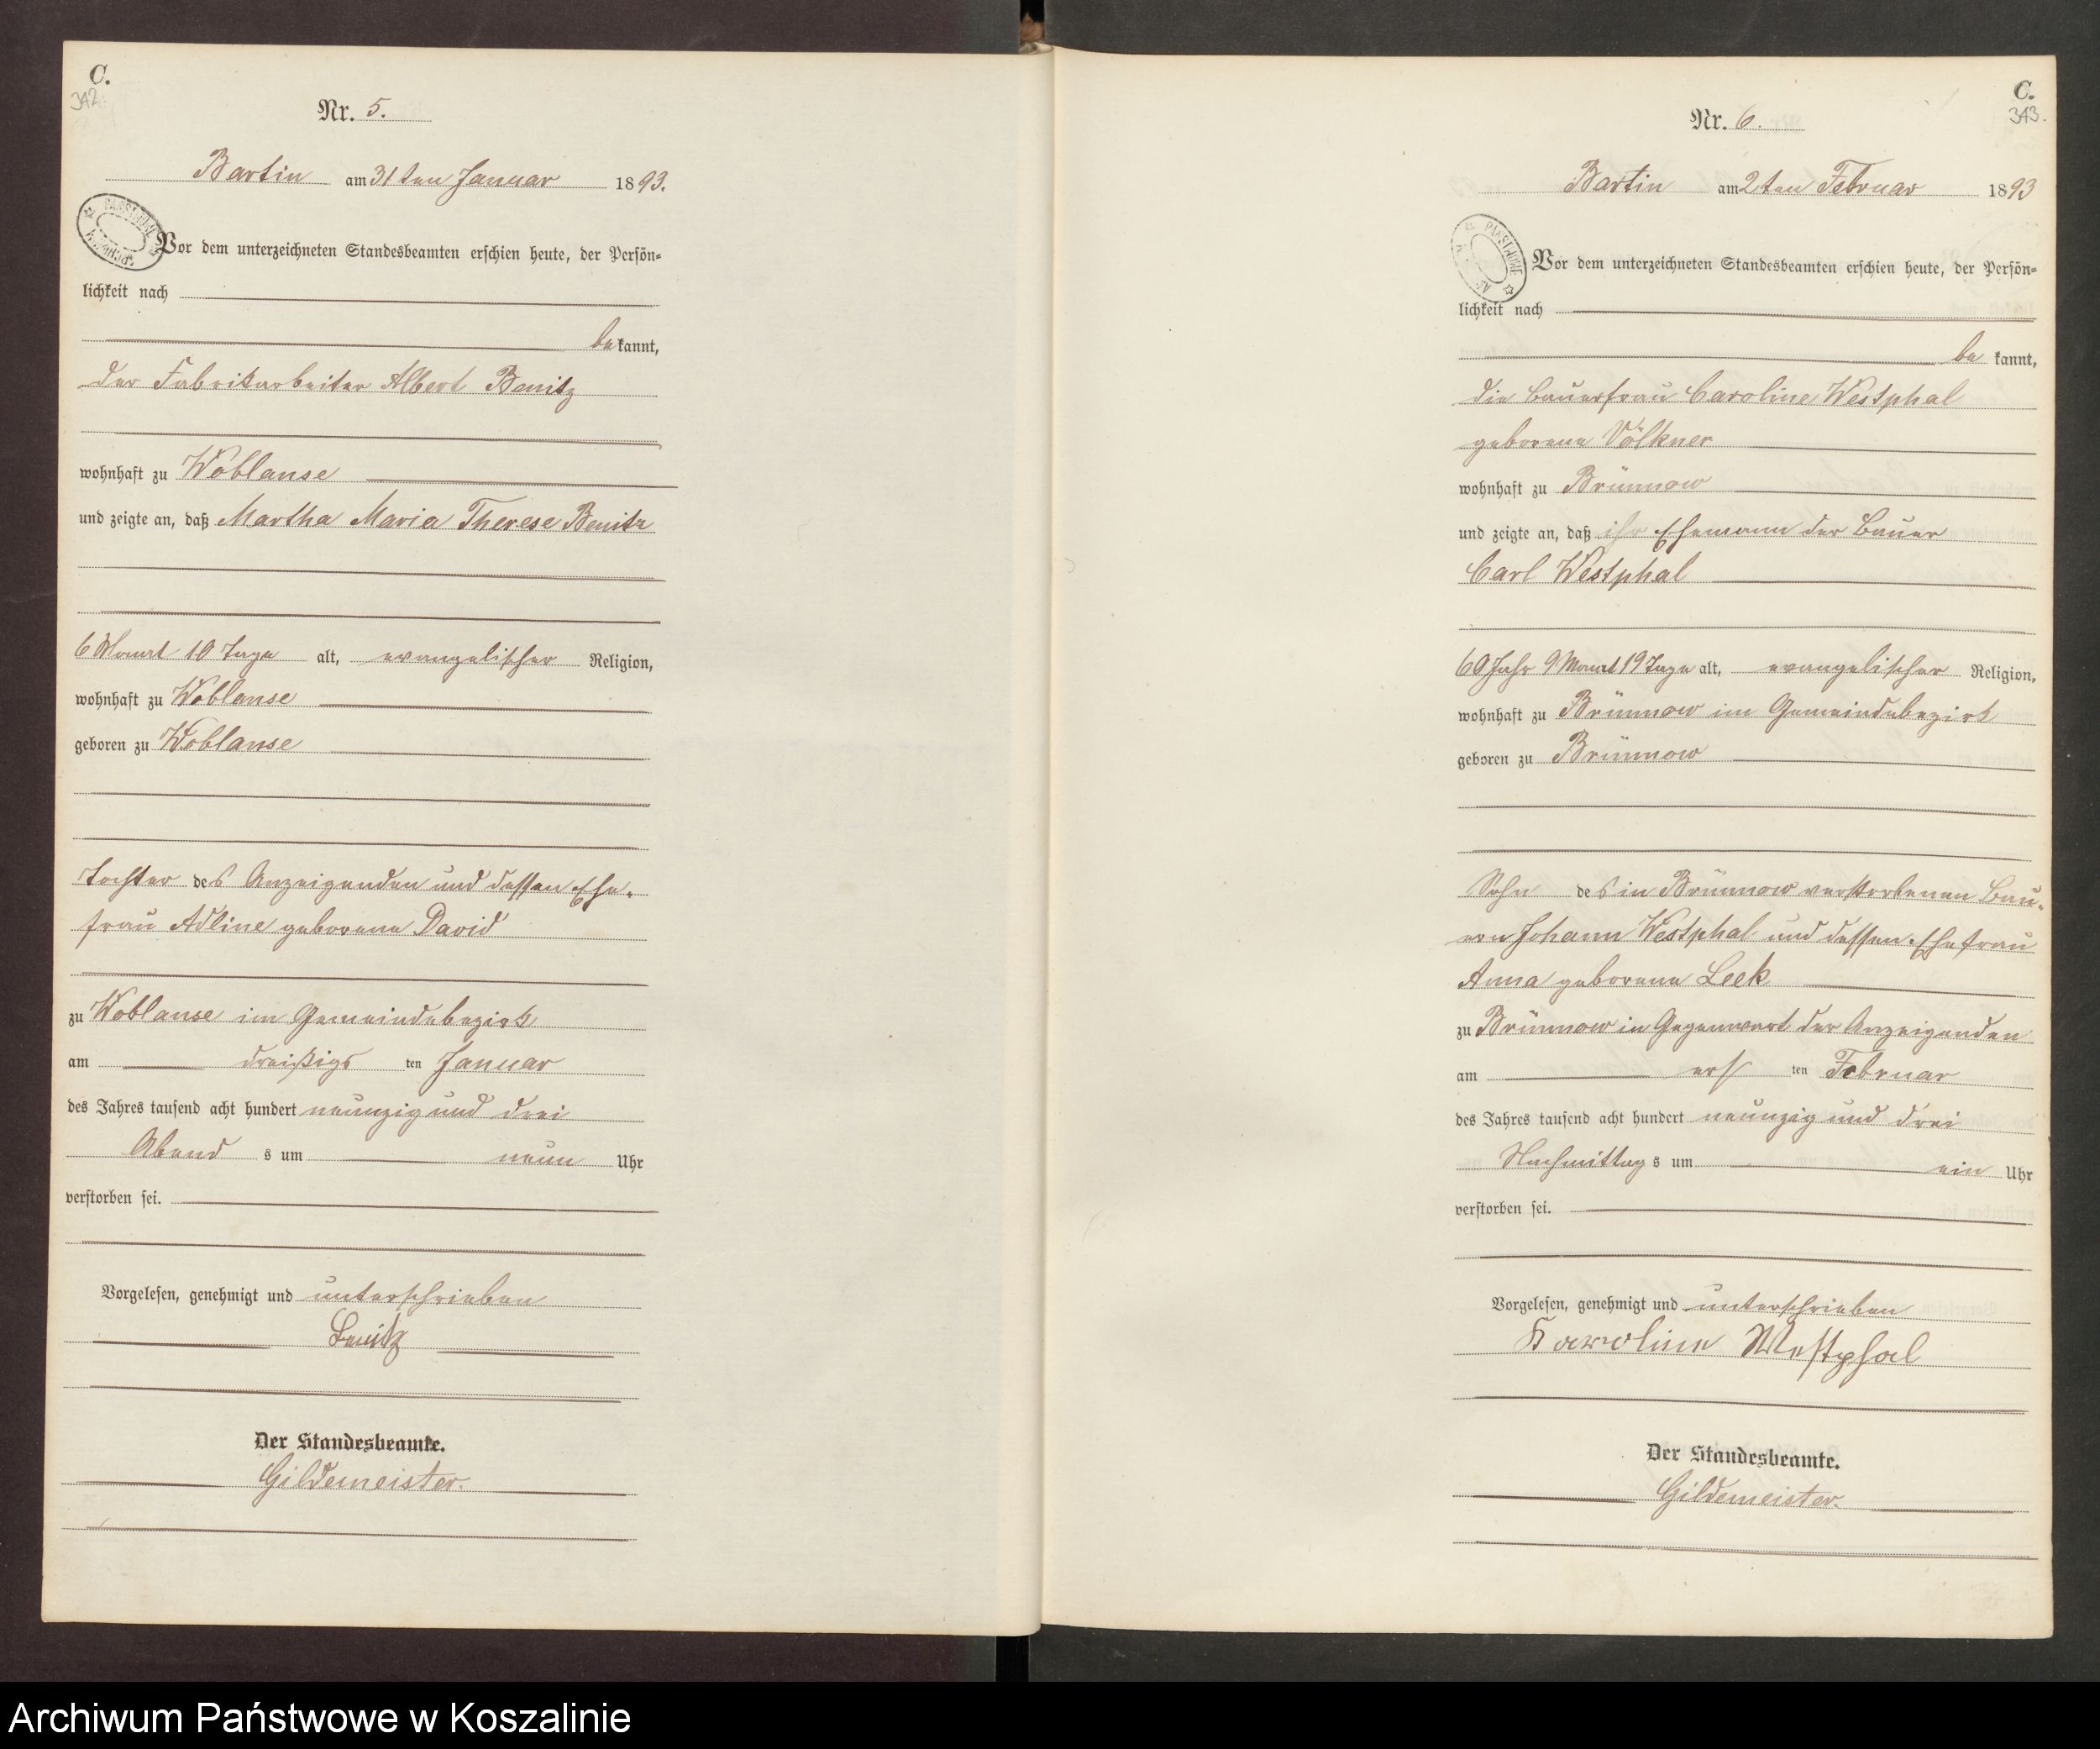 C.
342.
Nr. 5.
Bartin am 31ten Januar 1893.
Vor dem unterzeichneten Standesbeamten erschien heute, der Persön-
lichkeit nach
bekannt,
der Fabrikarbeiter Albert Benitz
wohnhaft zu Woblanse
und zeigte an, daß Martha Maria Therese Benitz
6 Monat 10 Tage alt, evangelischer Religion,
wohnhaft zu Woblanse
geboren zu Woblanse
Tochter des Anzeigenden und dessen Ehe-
frau Adline geborene David
zu Woblanse im Gemeindebezirk
am dreißigs ten Januar
des Jahres tausend acht hundert neunzig und drei
Abend s um neun Uhr
verstorben sei.
Vorgelesen, genehmigt und unterschrieben
Benitz
Der Standesbeamte.
Gildemeister.
C.
343.
Nr. 6.
Bartin am 2ten Februar 1893
Vor dem unterzeichneten Standesbeamten erschien heute, der Persön-
lichkeit nach
be kannt,
die Bauerfrau Caroline Westphal
geborene Völkner
wohnhaft zu Brünnow
und zeigte an, daß ihr Ehemann der Bauer
Carl Westphal
60 Jahr 9 Monat 19 Tage alt, evangelischer Religion,
wohnhaft zu Brünnow im Gemeindebezirk
geboren zu Brünnow
Sohn des in Brünnow verstorbenen Bau-
ern Johann Westphal und dessen Ehefrau
Anna geborene Leek
zu Brünnow in Gegenwart der Anzeigenden
am erst ten Februar
des Jahres tausend acht hundert neunzig und drei
Nachmittag s um ein Uhr
verstorben sei.
Vorgelesen, genehmigt und unterschrieben
Karoline Westphal
Der Standesbeamte.
Gildemeister.
Archiwum Państwowe w Koszalinie